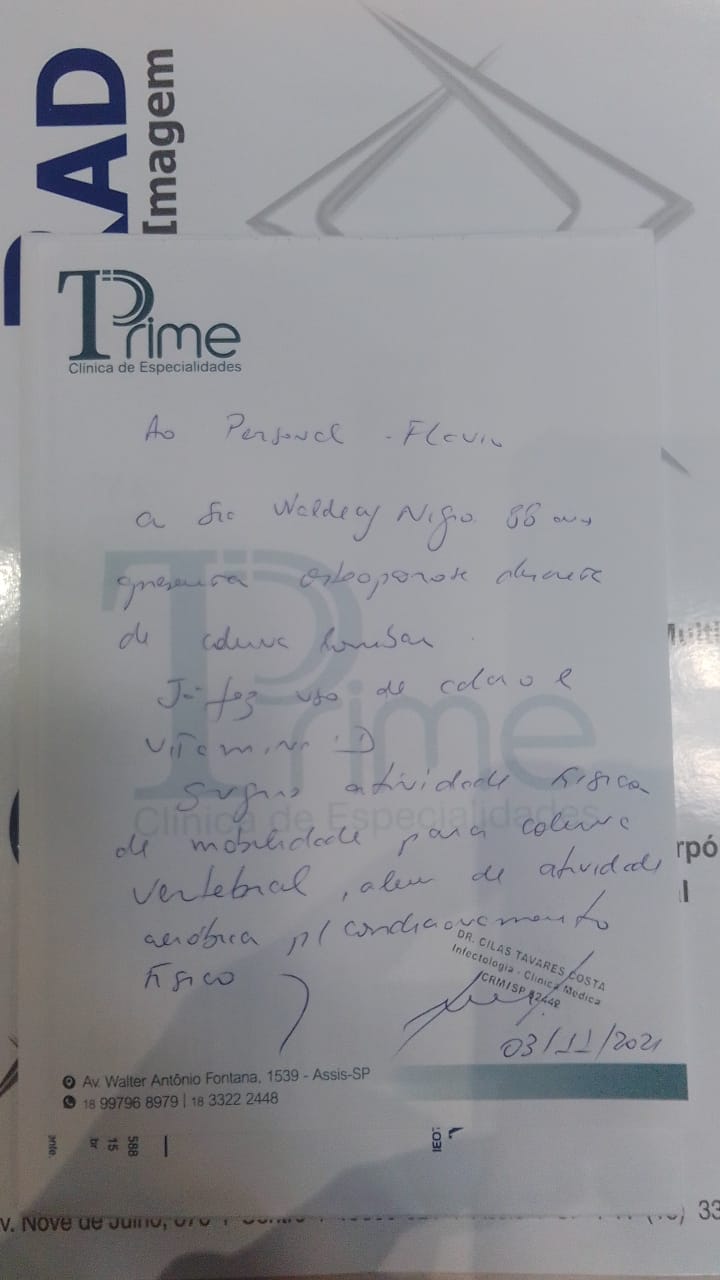 RAD
Imagem
TPrime
Clínica de Especialidades
Ao Personal - Flavio
a Sra Waldecy Nigro 88 anos
apresenta osteoporose discreta
de coluna lombar.
Já fez uso de calcio e
vitamina D
Sugiro atividade física
de mobilidade para coluna
vertebral, alem de atividade
aeróbica p/ condicionamento
físico
DR. CILAS TAVARES COSTA
Infectologia - Clínica Médica
CRM/SP 82449
03/11/2021
Av. Walter Antônio Fontana, 1539 - Assis-SP
18 99796 8979 | 18 3322 2448
TPrime
Clínica de Especialidades
v. Nove de Julho,
33